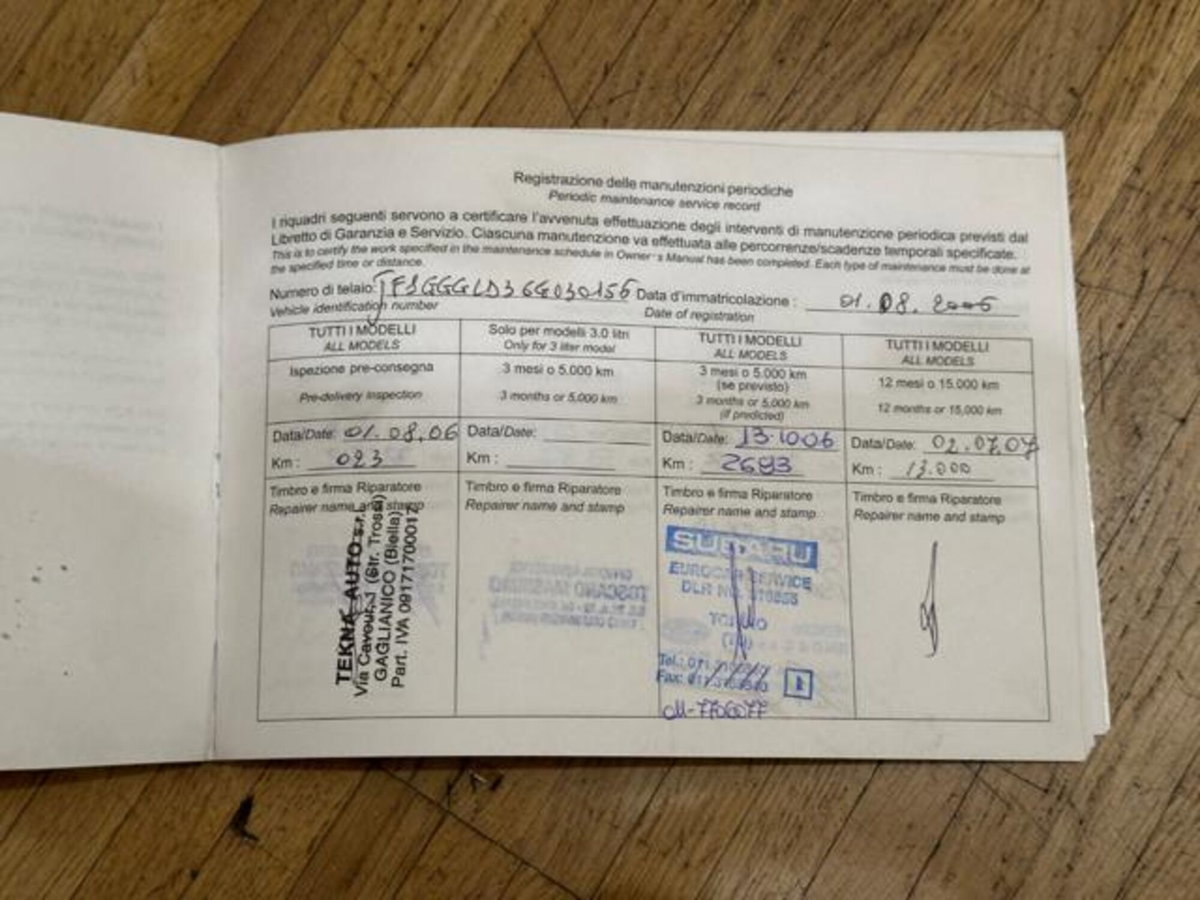 Registrazione delle manutenzioni periodiche
Periodic maintenance service record
I riquadri seguenti servono a certificare l'avvenuta effettuazione degli interventi di manutenzione periodica previsti dal
Libretto di Garanzia e Servizio. Ciascuna manutenzione va effettuata alle percorrenze/scadenze temporali specificate.
This is to certify the work specified in the maintenance schedule in Owner's Manual has been completed. Each type of maintenance must be done at
the specified time or distance.
Numero di telaio: JF1GGGLD36G030156 Data d'immatricolazione : 01.08.2006
Vehicle identification number Date of registration
TUTTI I MODELLI
ALL MODELS
Ispezione pre-consegna
Pre-delivery inspection
Data/Date: 01.08.06
Km : 023
Timbro e firma Riparatore
Repairer name and stamp
TEKNA AUTO s.r.l.
Via Cavour, (Str. Trossi)
GAGLIANICO (Biella)
Part. IVA 09171700017
Solo per modelli 3.0 litri
Only for 3 liter model
3 mesi o 5.000 km
3 months or 5,000 km
Data/Date:
Km :
Timbro e firma Riparatore
Repairer name and stamp
TUTTI I MODELLI
ALL MODELS
3 mesi o 5.000 km
(se previsto)
3 months or 5,000 km
(if predicted)
Data/Date: 13.10 06
Km : 2693
Timbro e firma Riparatore
Repairer name and stamp
SUBARU
EUROCAR SERVICE
DLR NO.
TORINO
Tel.: 011
Fax: 011
1
TUTTI I MODELLI
ALL MODELS
12 mesi o 15.000 km
12 months or 15,000 km
Data/Date: 02.07.07
Km : 13.000
Timbro e firma Riparatore
Repairer name and stamp